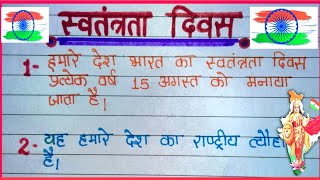 स्वतंत्रता दिवस
1- हमारे देश भारत का स्वतंत्रता दिवस
प्रत्येक वर्ष 15 अगस्त को मनाया
जाता है।
2- यह हमारे देश का राष्ट्रीय त्यौहा
है।